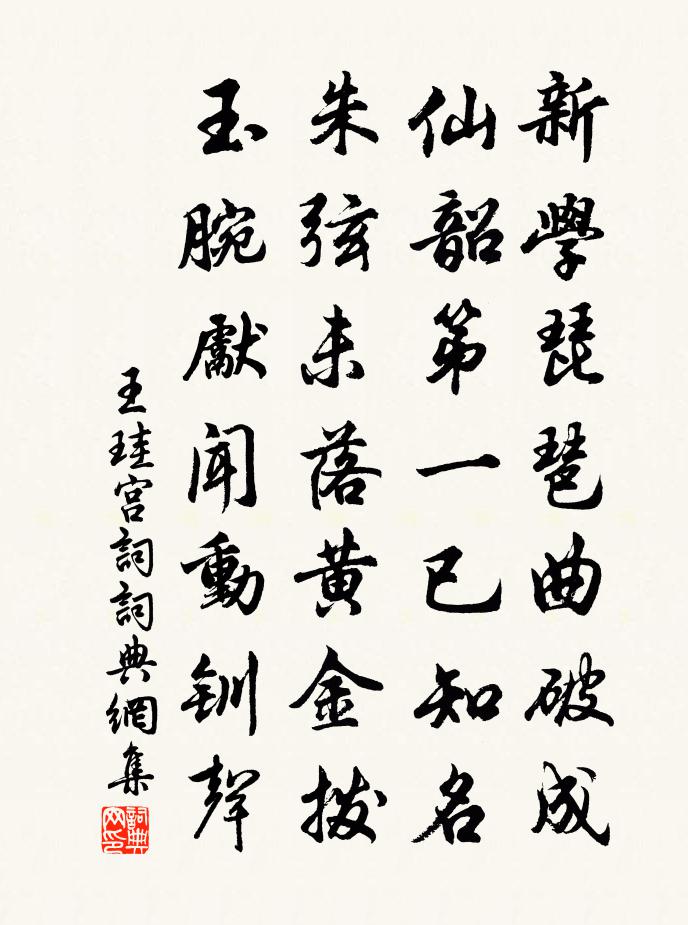 新學琵琶曲破成
仙韶第一已知名
朱弦未落黄金撥
玉腕獻聞動釧聲
王珪宮詞詞典網集
詞典网印